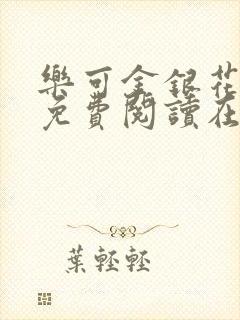 樂可金銀花
免費閱讀在
葉輕輕